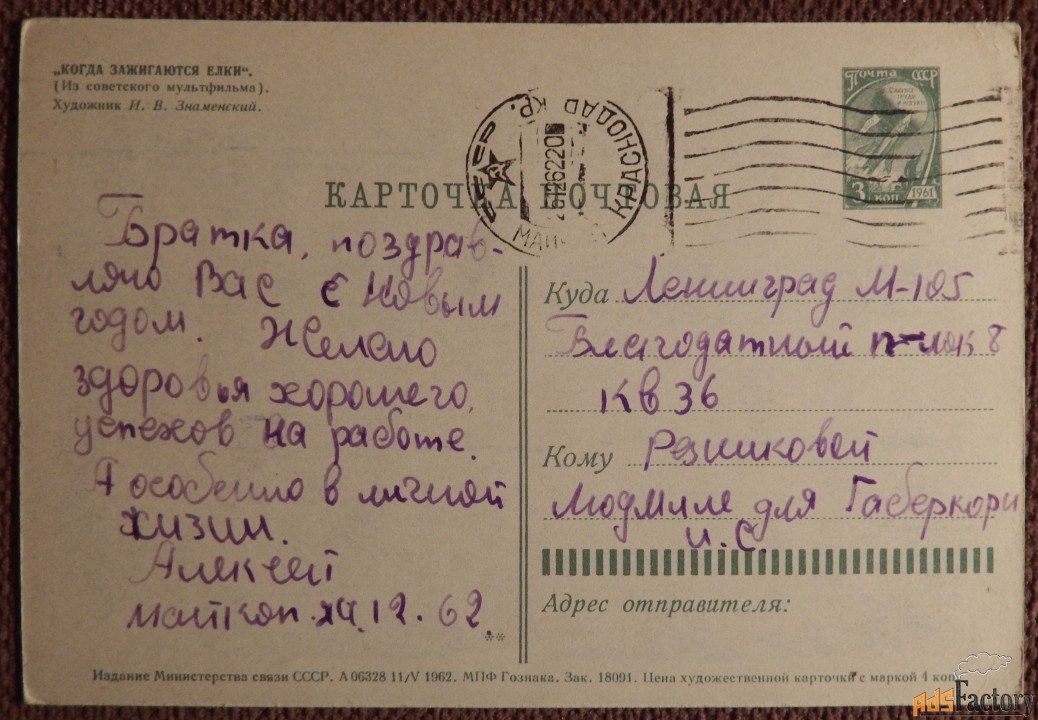 „КОГДА ЗАЖИГАЮТСЯ ЕЛКИ“.
(Из советского мультфильма).
Художник И. В. Знаменский.
Почта СССР
3 коп
1961
КРАСНОДАР КР.
КАРТОЧКА ПОЧТОВАЯ
Братка, поздрав-
ляю Вас с Новым
годом. Желаю
здоровья хорошего,
успехов на работе.
А особенно в личной
жизни.
Алексей
Майкоп. 24.12.62
Куда Ленинград М-105
Благодатный 8
кв 36
Кому Резниковой
Людмиле для Габеркорн
И.С.
Адрес отправителя:
Издание Министерства связи СССР. А 06328 11/V 1962. МПФ Гознака. Зак. 18091. Цена художественной карточки с маркой 4 коп.
AdsFactory